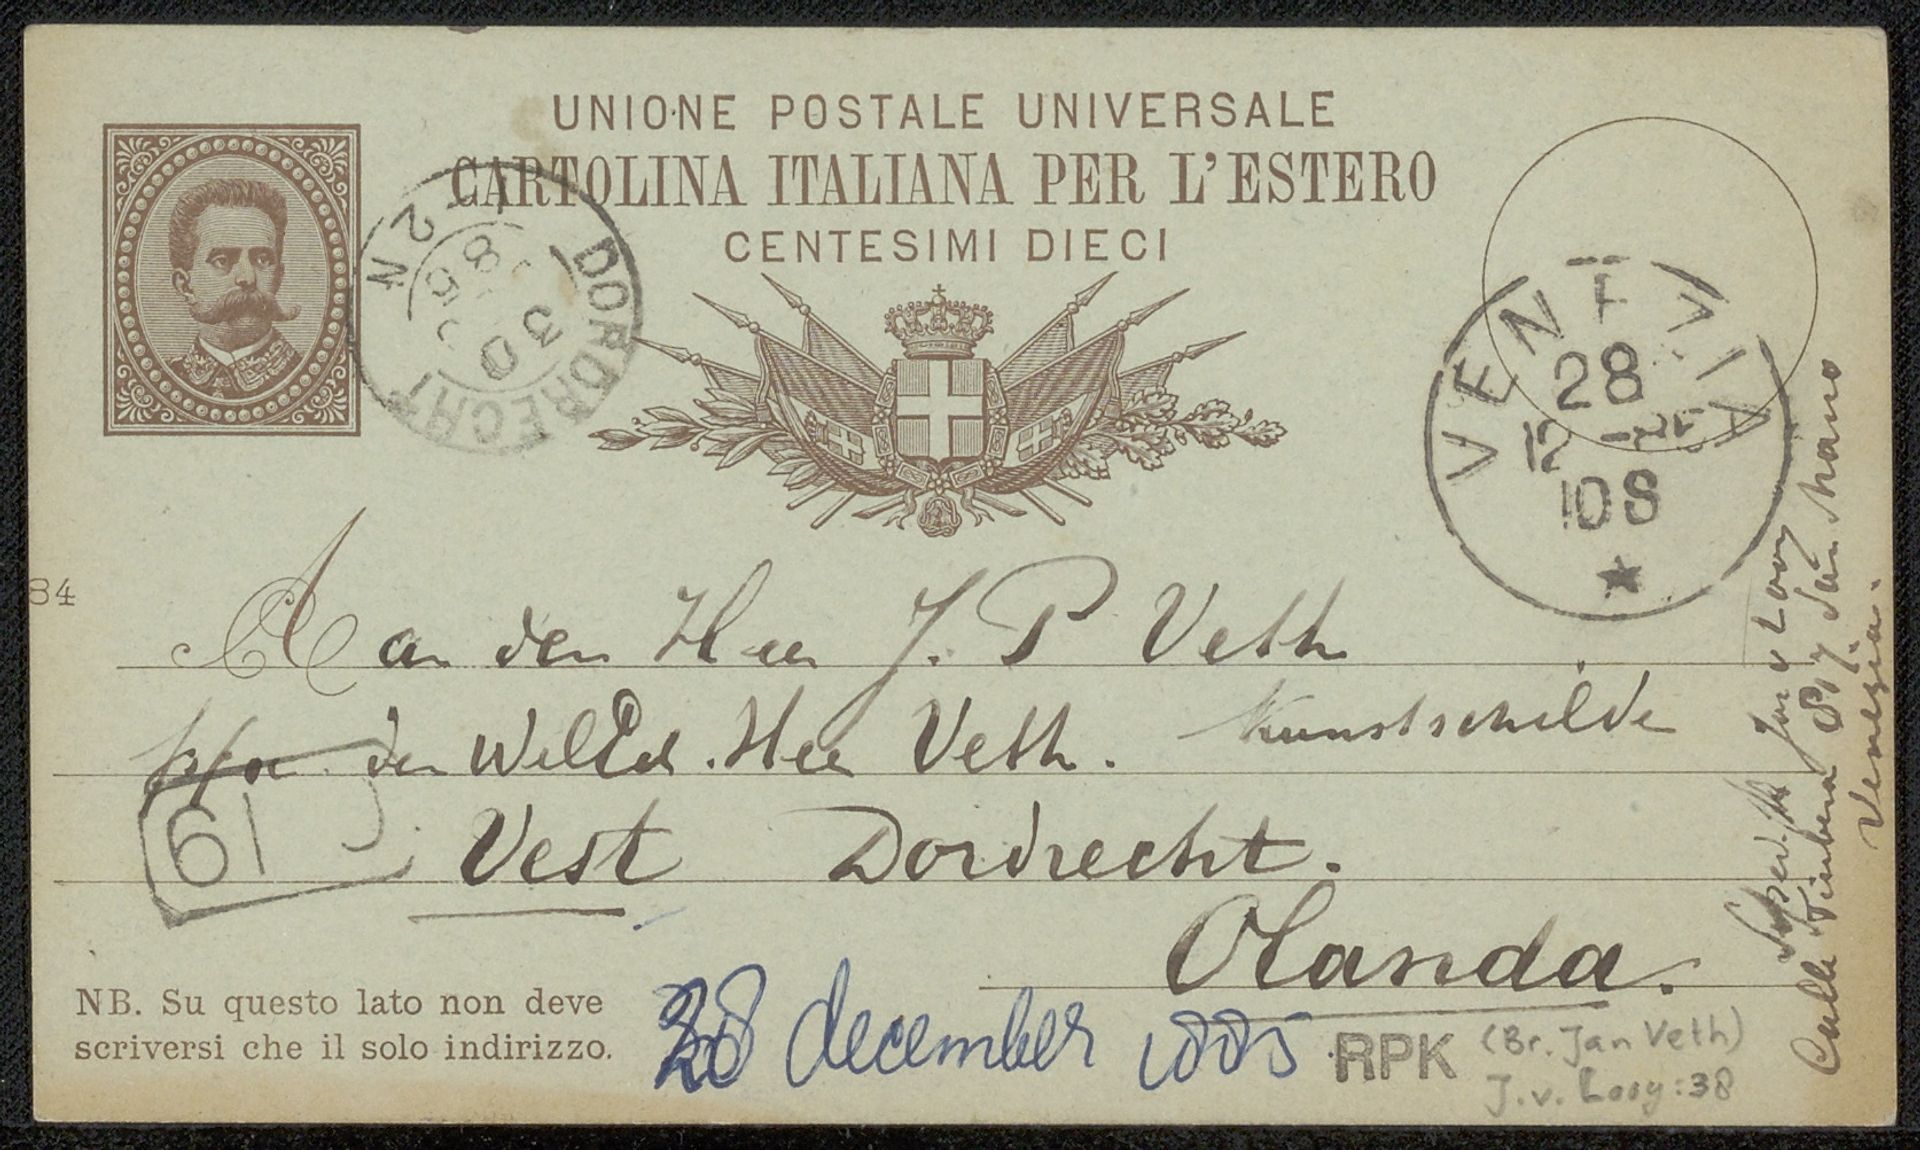 UNIONE POSTALE UNIVERSALE
CARTOLINA ITALIANA PER L'ESTERO
CENTESIMI DIECI
DORDRECHT
2N
30
85
VENEZIA
28
12 - 85
10S
84
Aan den Heer J. P. Veth
p/a den WelEd. Heer Veth. Kunstschilde
61
Vest Dordrecht.
Olanda.
Jac v Looy
Calle 817 San
Venezia.
NB. Su questo lato non deve
scriversi che il solo indirizzo.
28 december 1885
RPK
(Br. Jan Veth)
J. v. Looy: 38